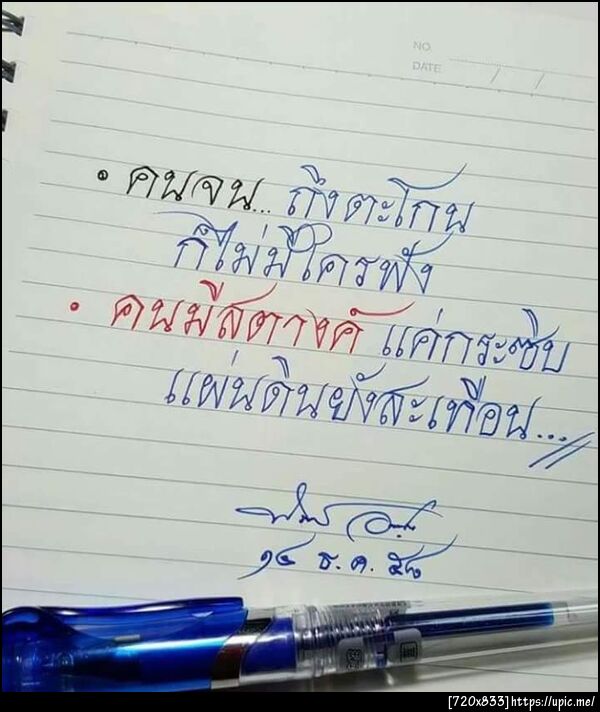 NO.
DATE / /
• คนจน... ถึงตะโกน
ก็ไม่มีใครฟัง
• คนมีสตางค์ แค่กระซิบ
แผ่นดินยังสะเทือน...//
๑๔ ธ.ค. ๕๖
[720x833]https://upic.me/